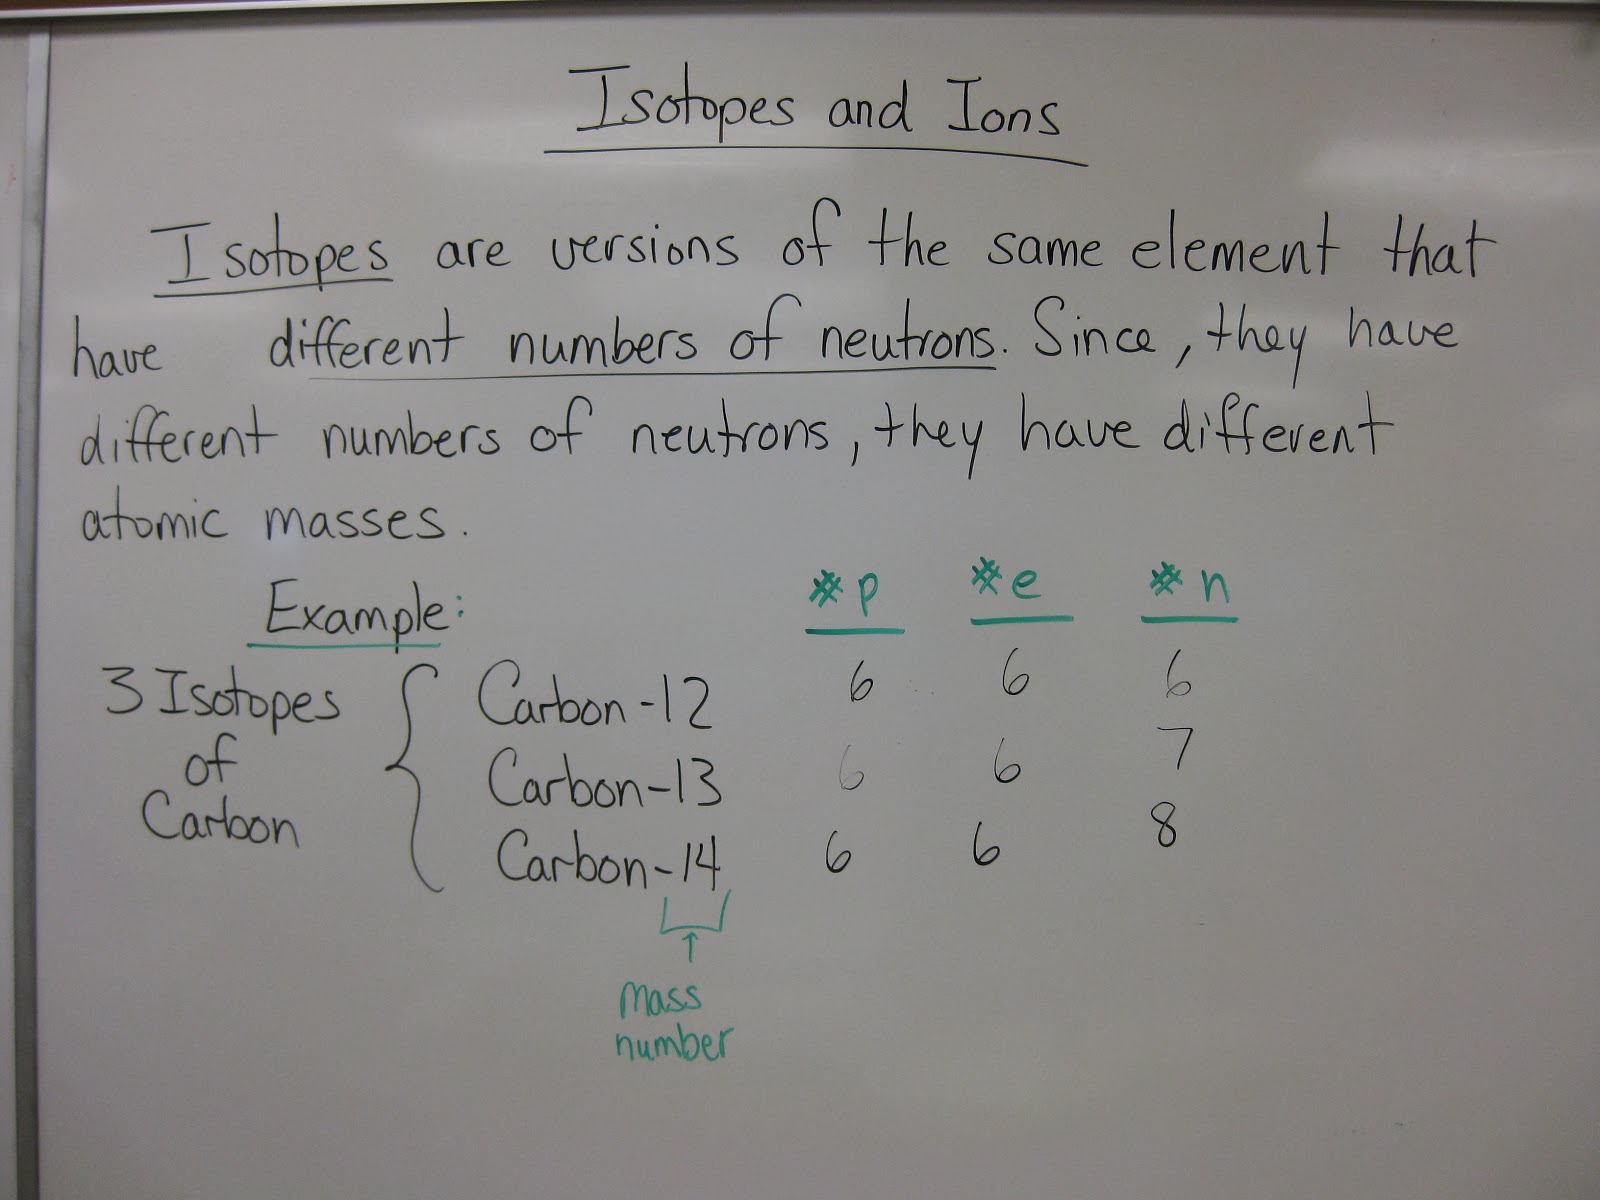 Isotopes and Ions
Isotopes are versions of the same element that
have different numbers of neutrons. Since, they have
different numbers of neutrons, they have different
atomic masses.
Example: #p #e #n
3 Isotopes of Carbon { Carbon-12 6 6 6
Carbon-13 6 6 7
Carbon-14 6 6 8
↑
mass
number